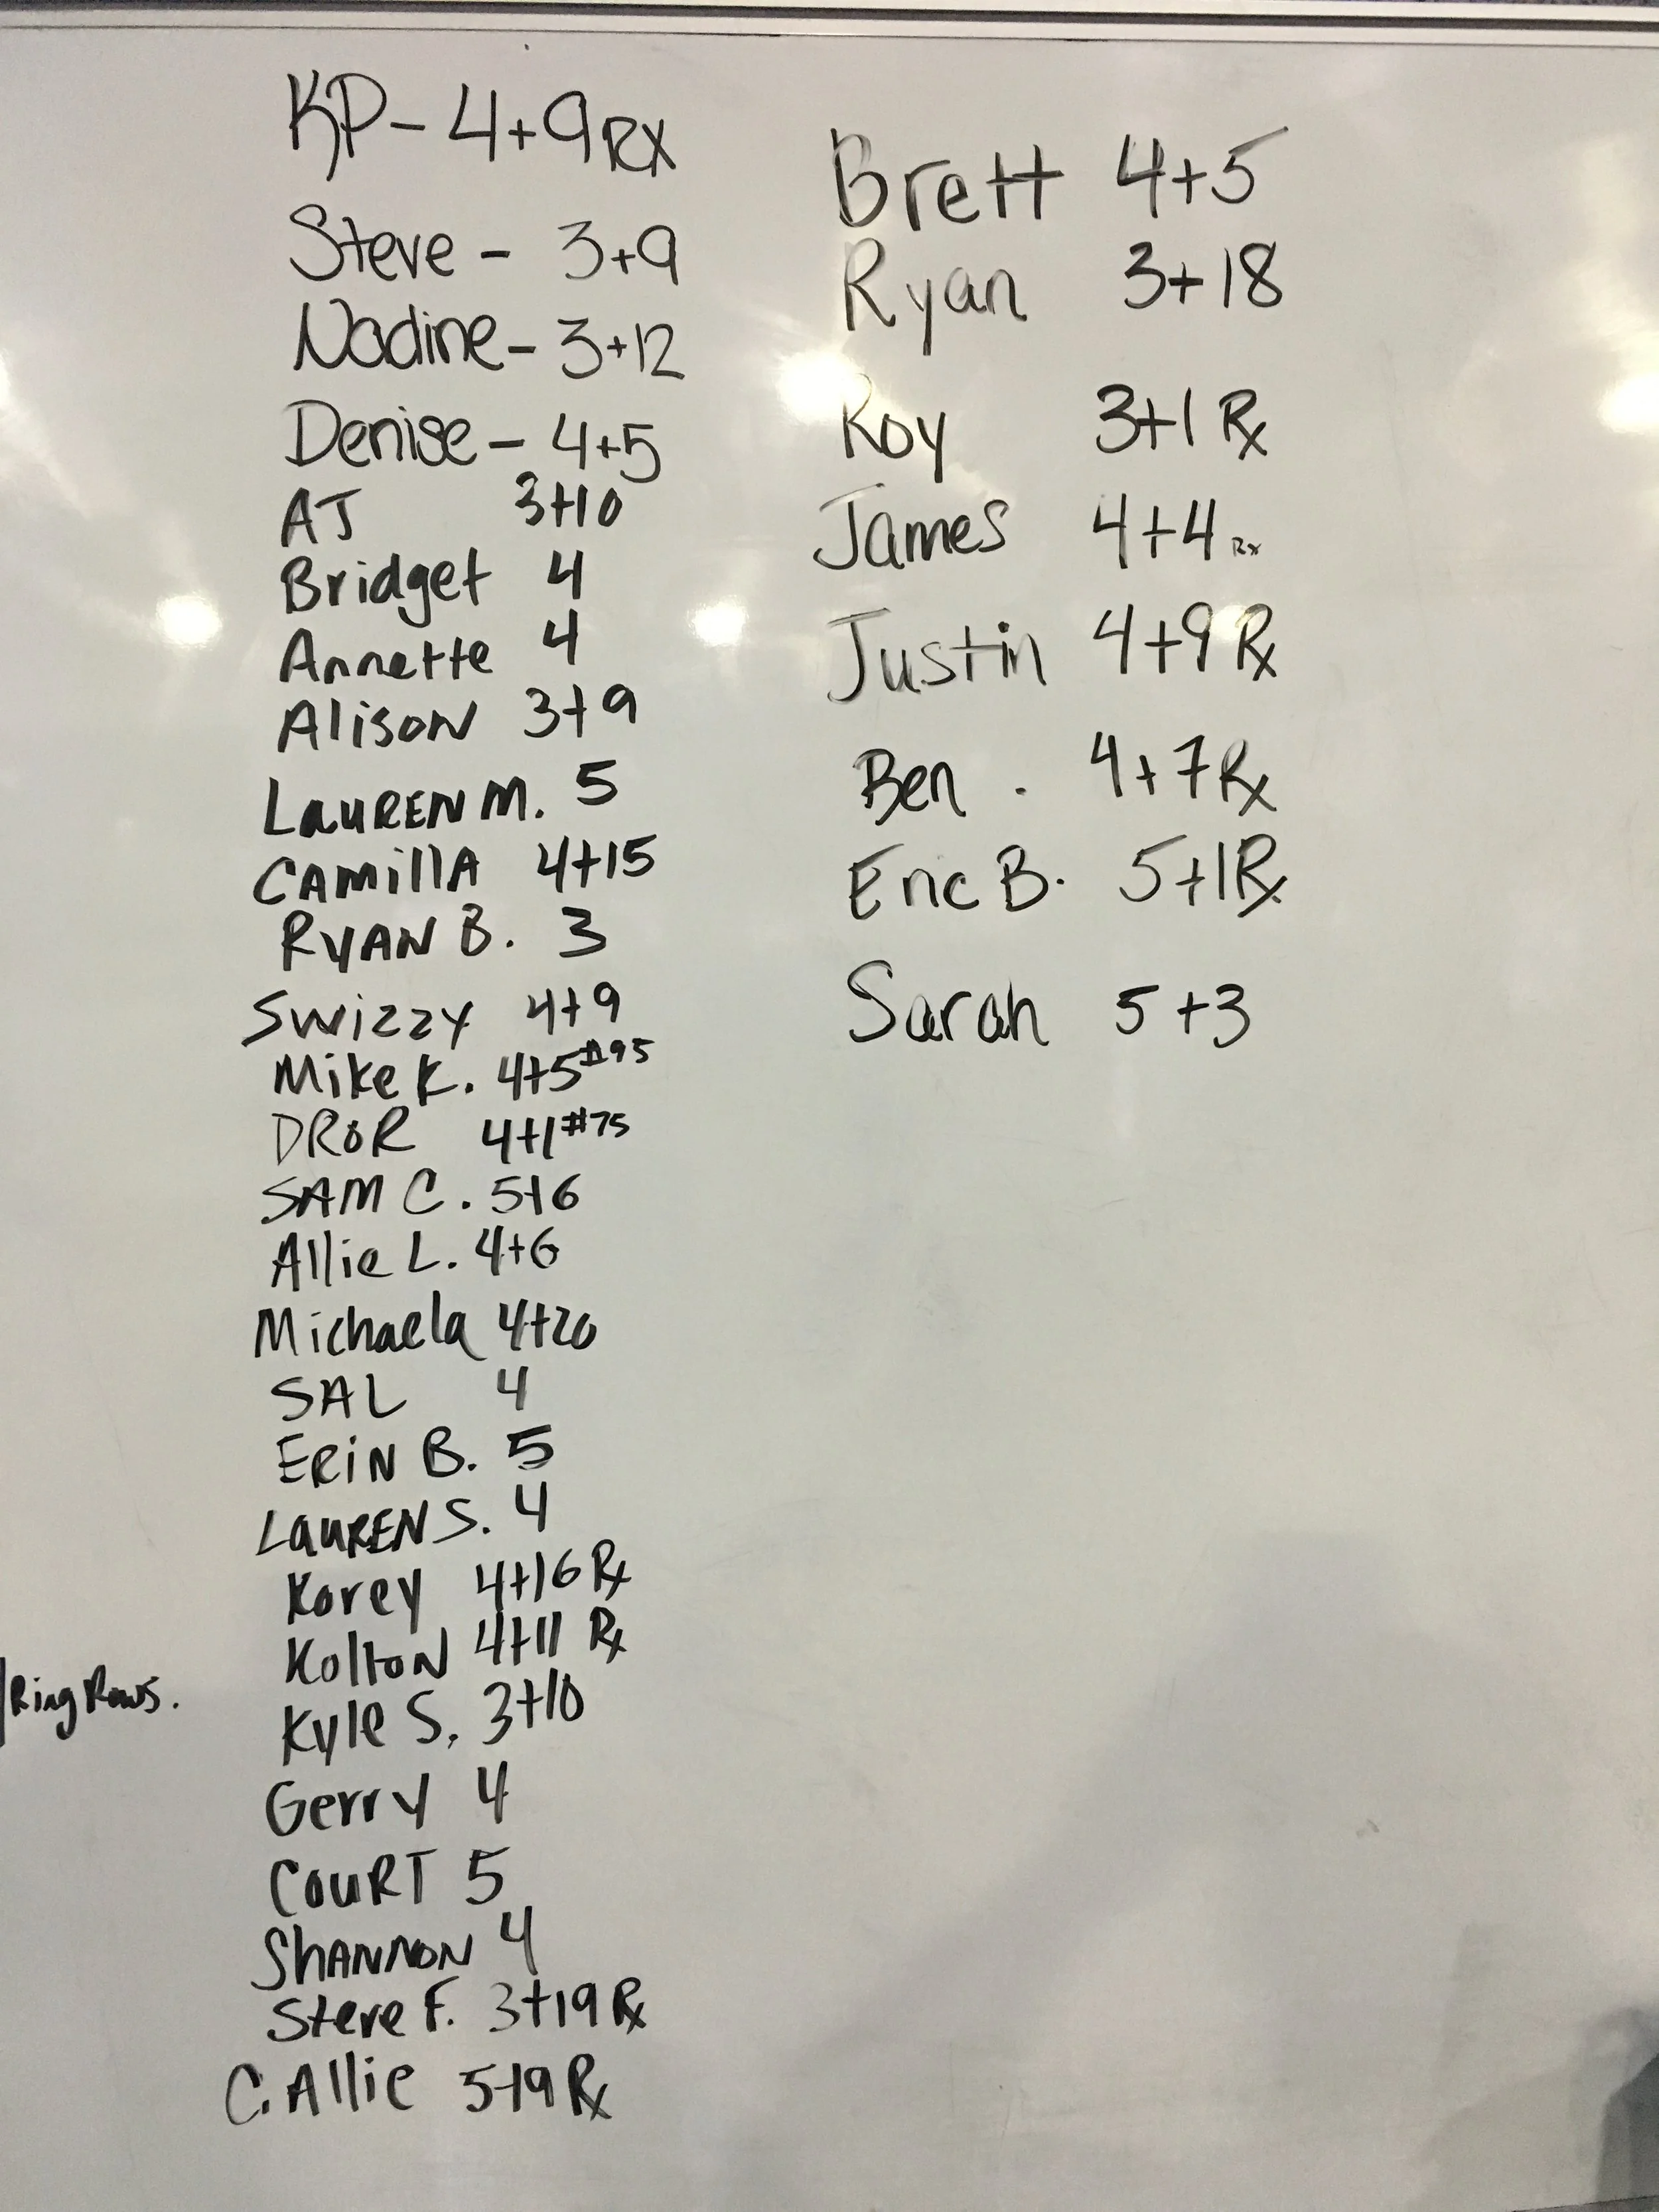 KP - 4+9 RX
Steve - 3+9
Nadine - 3+12
Denise - 4+5
AJ 3+10
Bridget 4
Annette 4
Alison 3+9
LAUREN M. 5
CAMillA 4+15
RYAN B. 3
Swizzy 4+9
Mike K. 4+5 #95
DROR 4+1 #75
SAM C. 5+6
Allie L. 4+6
Michaela 4+20
SAL 4
ERiN B. 5
LAUREN S. 4
Korey 4+16 Rx
KoltoN 4+11 Rx
Kyle S. 3+10
Gerry 4
COURT 5
ShANNON 4
Steve F. 3+19 Rx
C. Allie 5+9 Rx
Ring Rows.
Brett 4+5
Ryan 3+18
Roy 3+1 Rx
James 4+4 Rx
Justin 4+9 Rx
Ben . 4+7 Rx
Eric B. 5+1 Rx
Sarah 5+3